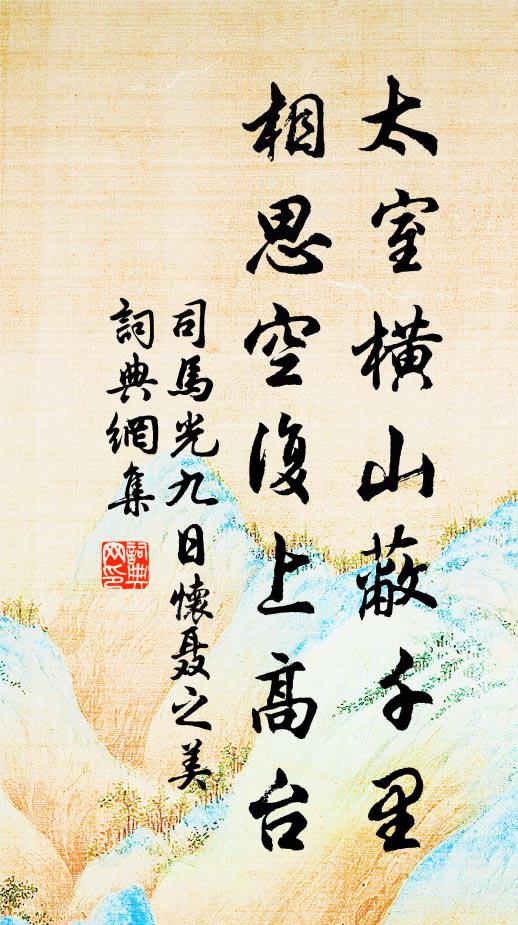 太室橫山蔽千里
相思空復上高台
司馬光九日懷聶之美
詞典網集
詞典
网印